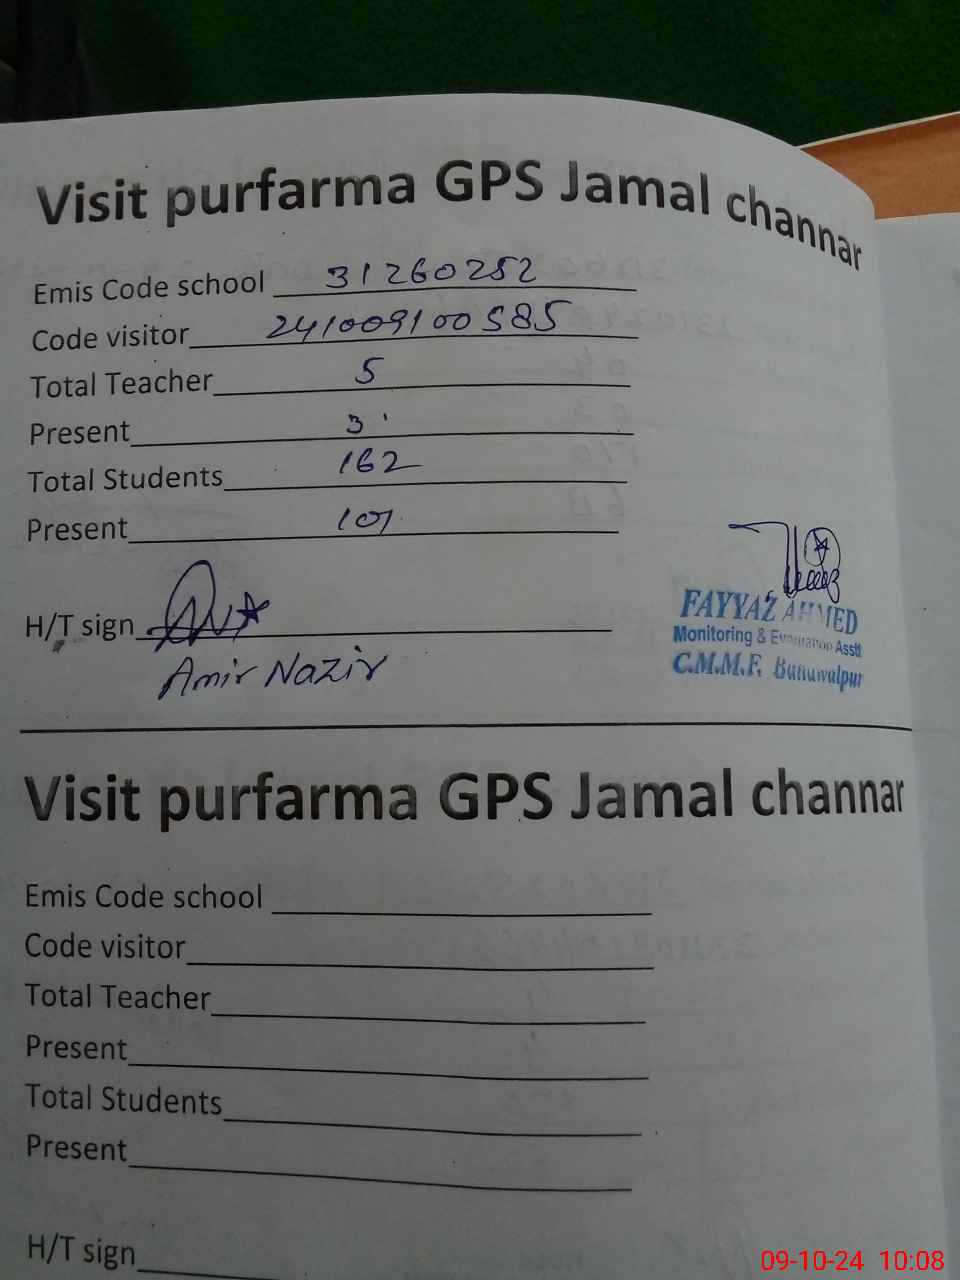 Visit purfarma GPS Jamal channar
Emis Code school 31260252
Code visitor 241009100585
Total Teacher 5
Present 3
Total Students 162
Present 101
H/T sign
Amir Nazir
FAYYAZ AHMED
Monitoring & Evaluation Asstt
C.M.M.F. Bahawalpur
Visit purfarma GPS Jamal channar
Emis Code school
Code visitor
Total Teacher
Present
Total Students
Present
H/T sign
09-10-24 10:08